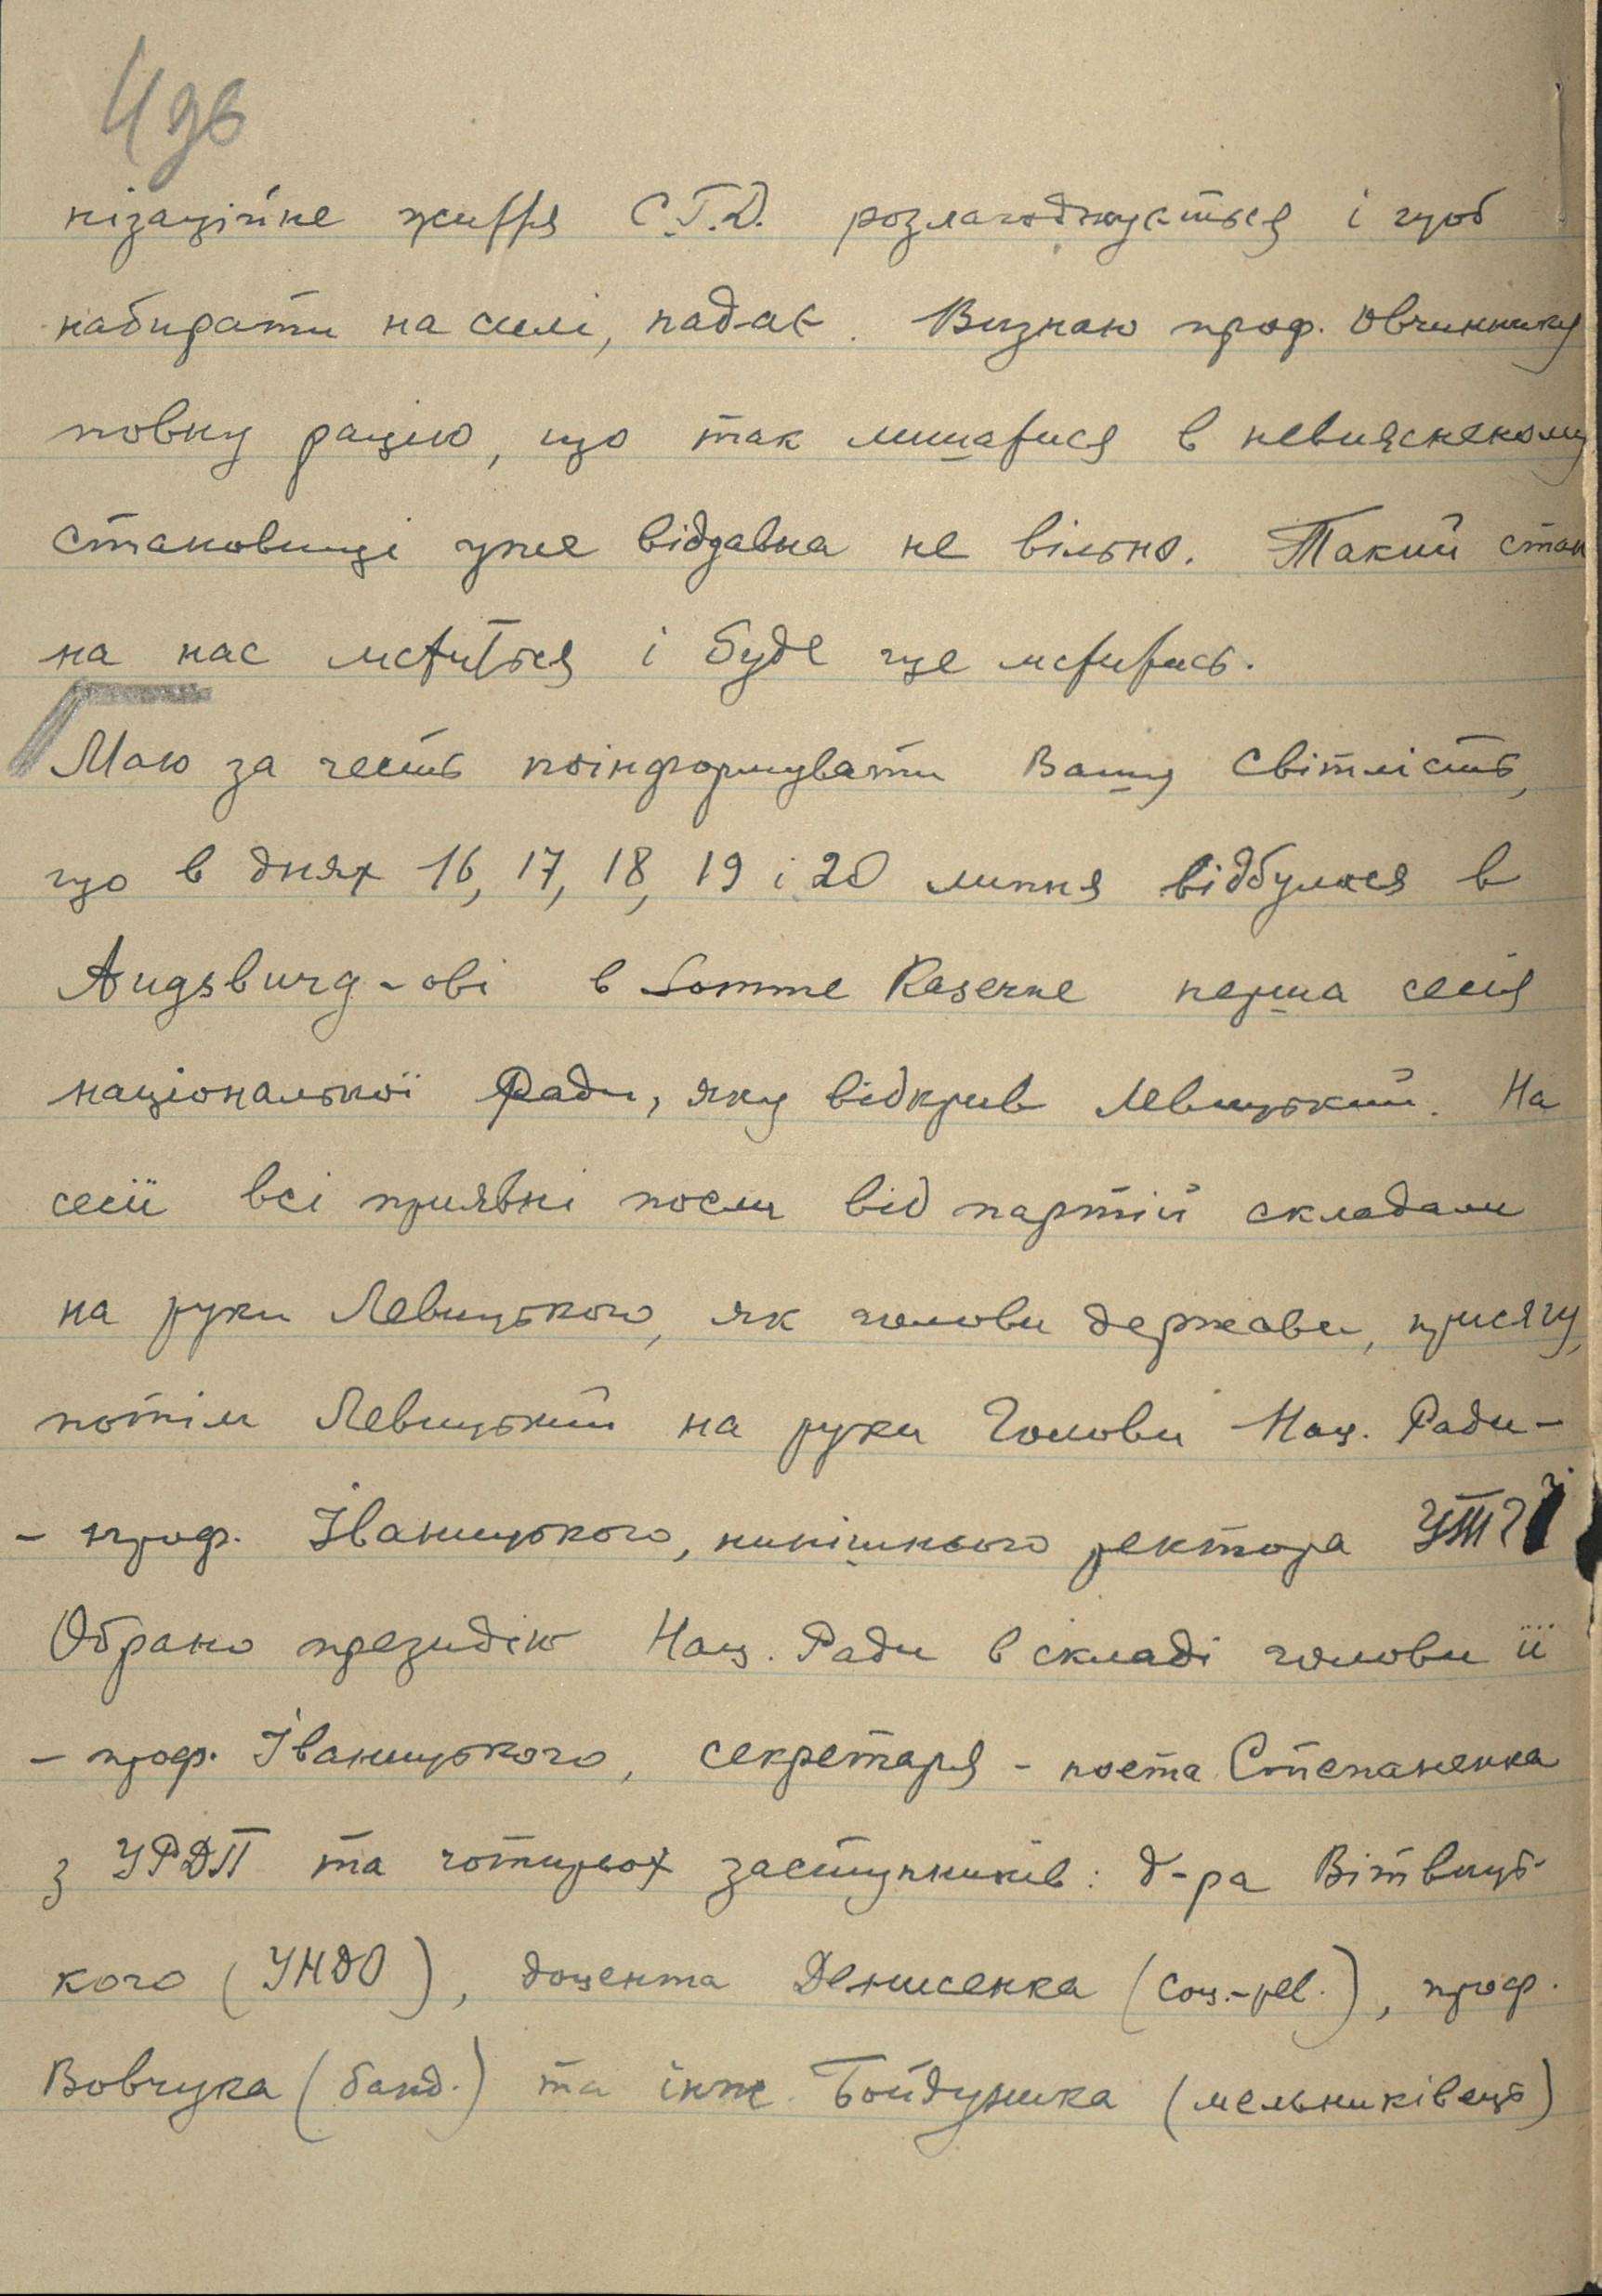 4 зв
нізаційне життя С.Г.Д. розлагоджується і щоб
набирати на силі, падає. Визнаю проф. Овчиннику
повну рацію, що так лишатися в невиясненому
становищі уже віддавна не вільно. Такий стан
на нас мститься і буде ще мститись.
Маю за честь поінформувати Вашу Світлість,
що в днях 16, 17, 18, 19 і 20 липня відбулася в
Augsburg-ові в Somme Kaserne перша сесія
національної Ради, яку відкрив Левицький. На
сесії всі приявні посли від партій складали
на руки Левицького, як голови держави, присягу,
потім Левицький на руки Голови Нац. Ради –
– проф. Іваницького, нинішнього ректора УТГІ
Обрано президію Нац. Ради в складі голови її
– проф. Іваницького, секретаря – поета Степаненка
з УРДП та чотирьох заступників: д-ра Вітвиць-
кого (УНДО), доцента Денисенка (соц.-рев.), проф.
Вовчука (банд.) та інж. Бойдуника (мельниківець)